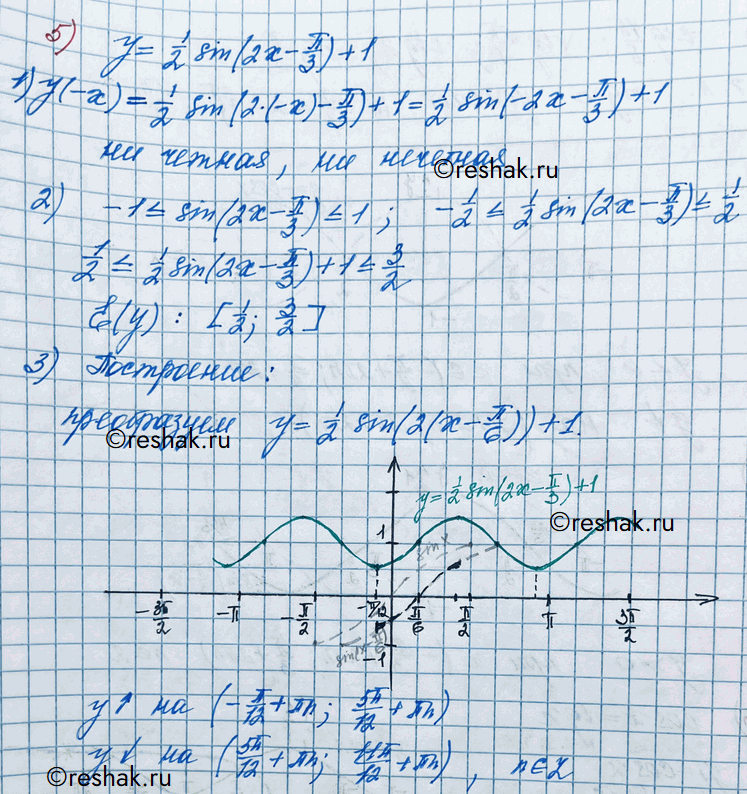 5) y = 1/2 sin(2x - π/3) + 1
1) y(-x) = 1/2 sin(2·(-x) - π/3) + 1 = 1/2 sin(-2x - π/3) + 1
ни четная, ни нечетная
©reshak.ru
2) -1 ≤ sin(2x - π/3) ≤ 1 ; -1/2 ≤ 1/2 sin(2x - π/3) ≤ 1/2
1/2 ≤ 1/2 sin(2x - π/3) + 1 ≤ 3/2
E(y) : [1/2; 3/2]
3) Построение:
преобразуем y = 1/2 sin(2(x - π/6)) + 1.
©reshak.ru
y = 1/2 sin(2x - π/3) + 1
©reshak.ru
1
sin x
-3π/2 -π -π/2 -π/12 π/6 π/2 π 3π/2
-1
y↑ на (-π/12 + πn; 5π/12 + πn)
y↓ на (5π/12 + πn; 11π/12 + πn), n∈Z
©reshak.ru